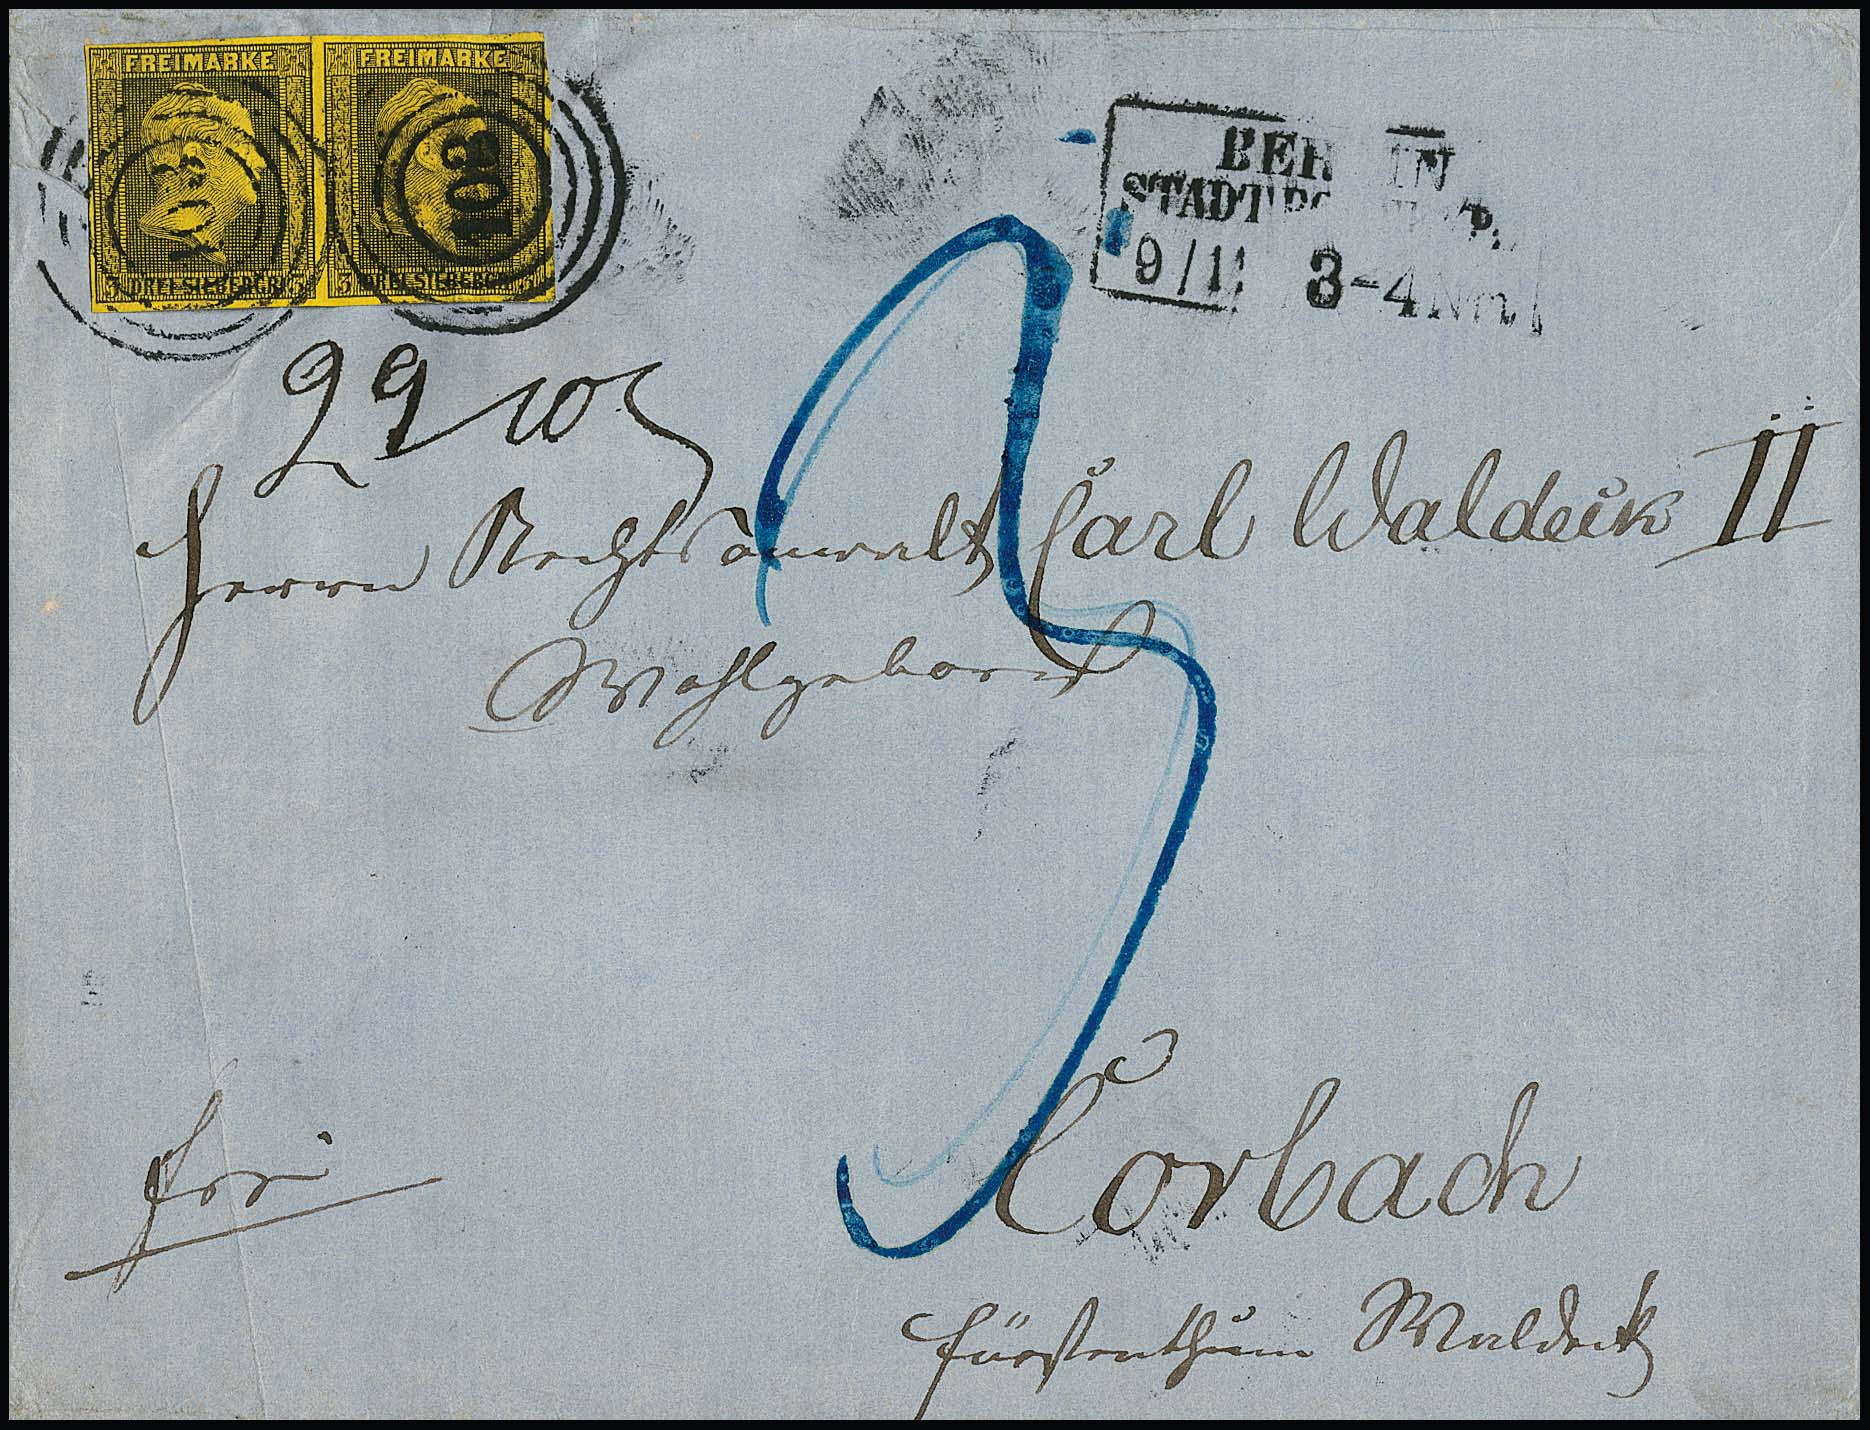 FREIMARKE FREIMARKE
3 DREI SILBERGR. 3 3 DREI SILBERGR. 3
103
BERLIN
STADTPOST-EXP.
9/11 3-4 Nm
3
Herrn Rechtsanwalt Carl Waldeck II
Wohlgeboren
frei
Corbach
Fürstenthum Waldeck